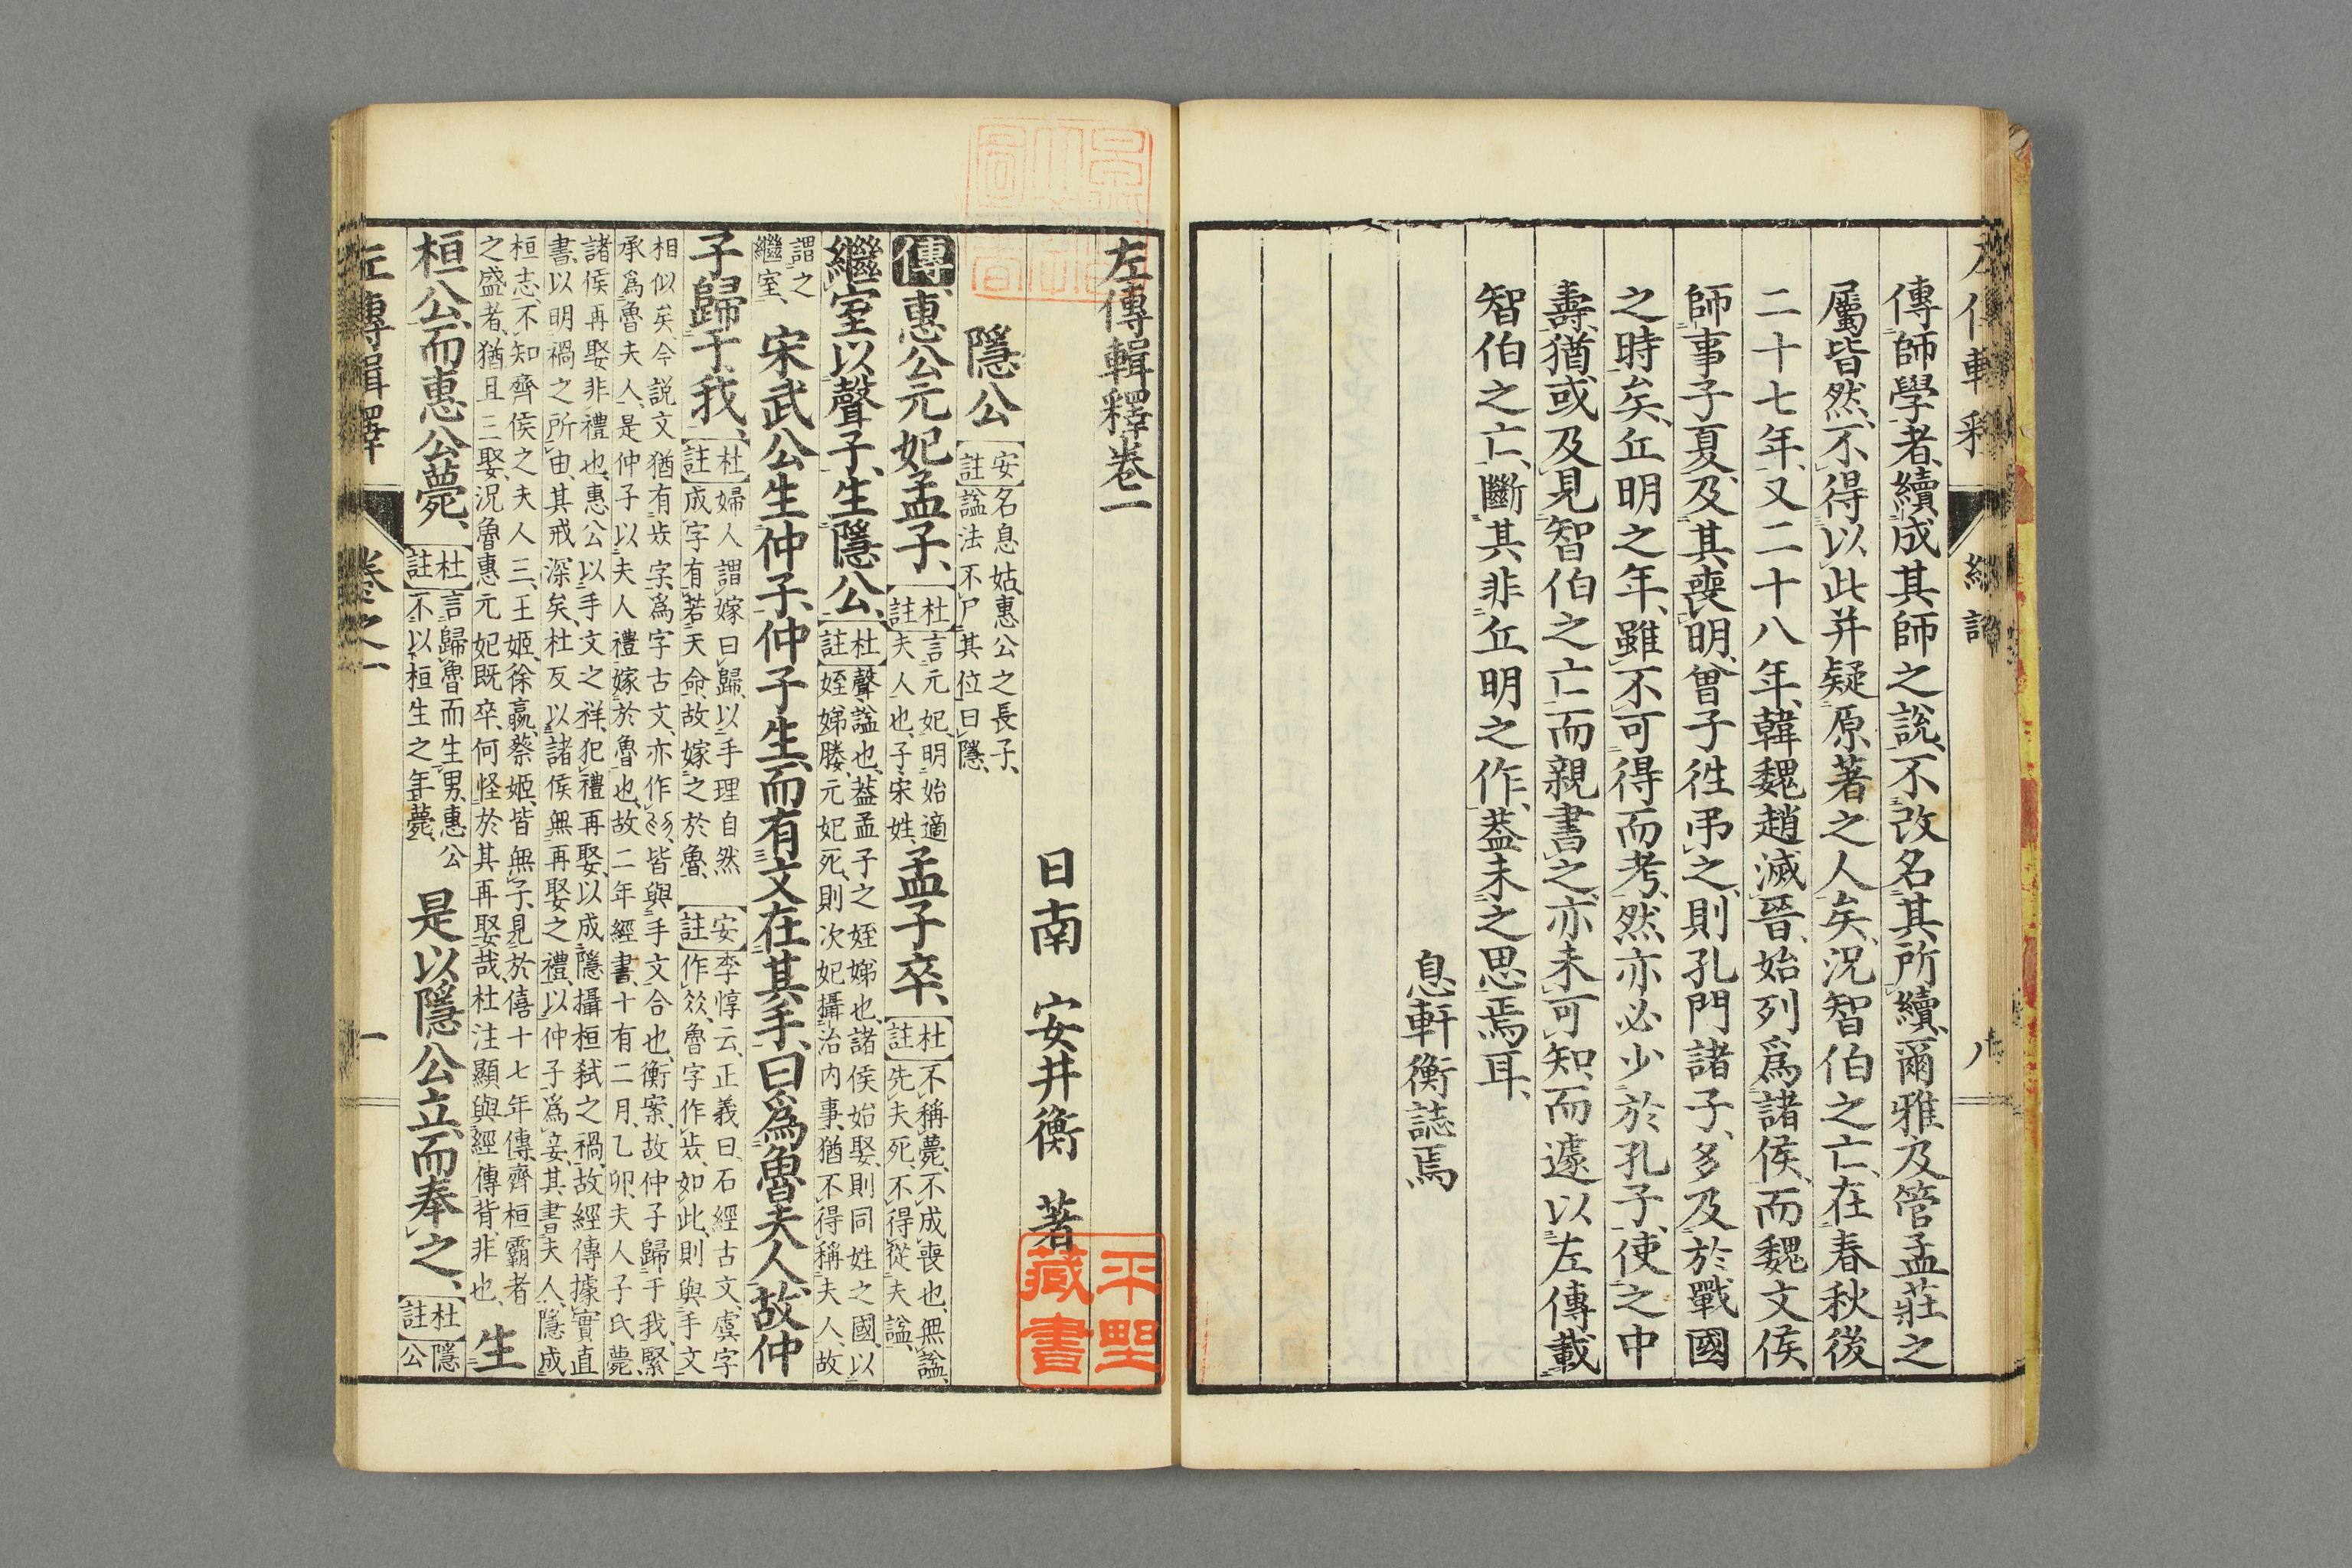 傳師學者、續成其師之說、不改名其所續、爾雅及管孟莊之
屬皆然、不得以此并疑原著之人矣、況智伯之亡、在春秋後
二十七年、又二十八年、韓魏趙滅晉、始列爲諸侯、而魏文侯
師事子夏、及其喪明、曾子徃弔之、則孔門諸子、多及於戰國
之時矣、丘明之年、雖不可得而考、然亦必少於孔子、使之中
壽、猶或及見智伯之亡、而親書之、亦未可知、而遽以左傳載
智伯之亡、斷其非丘明之作、葢未之思焉耳、
息軒衡誌焉
左傳輯釋卷一
日南 安井衡 著
平野藏書
隱公
安註
名息姑、惠公之長子、
諡法不尸其位曰隱、
傳惠公元妃孟子、
杜註
言元妃、明始適
夫人也、子宋姓、
孟子卒、
杜註
不稱薨、不成喪也、無諡、
先夫死、不得從夫諡、
繼室以聲子、生隱公、
杜註
聲諡也、葢孟子之姪娣也、諸侯始娶、則同姓之國、以
姪娣媵、元妃死、則次妃攝治內事、猶不得稱夫人、故
謂之
繼室、
宋武公生仲子、仲子生、而有文在其手、曰爲魯夫人、故仲
子歸于我、
杜註
婦人謂嫁曰歸、以手理自然
成字、有若天命、故嫁之於魯、
安註
李惇云、正義曰、石經古文、虞字
作、魯字作、如此、則與手文
相似矣、今說文猶有字、爲字古文、亦作、皆與手文合也、衡案、故仲子歸于我、緊
承爲魯夫人、是仲子以夫人禮嫁於魯也、故二年經書、十有二月、乙卯、夫人子氏薨、
諸侯再娶非禮也、惠公以手文之祥、犯禮再娶、以成隱攝桓弒之禍、故經傳據實直
書、以明禍之所由、其戒深矣、杜反以諸侯無再娶之禮、以仲子爲妾、其書夫人、隱成
桓志、不知齊侯之夫人三、王姬、徐嬴、蔡姬、皆無子、見於僖十七年傳、齊桓霸者
之盛者、猶且三娶、況魯惠元妃既卒、何怪於其再娶哉、杜注顯與經傳背、非也、
生
桓公、而惠公薨、
杜註
言歸魯而生男、惠公
不以桓生之年薨、
是以隱公立、而奉之、
杜註
隱
公
左傳輯釋
卷之一
一